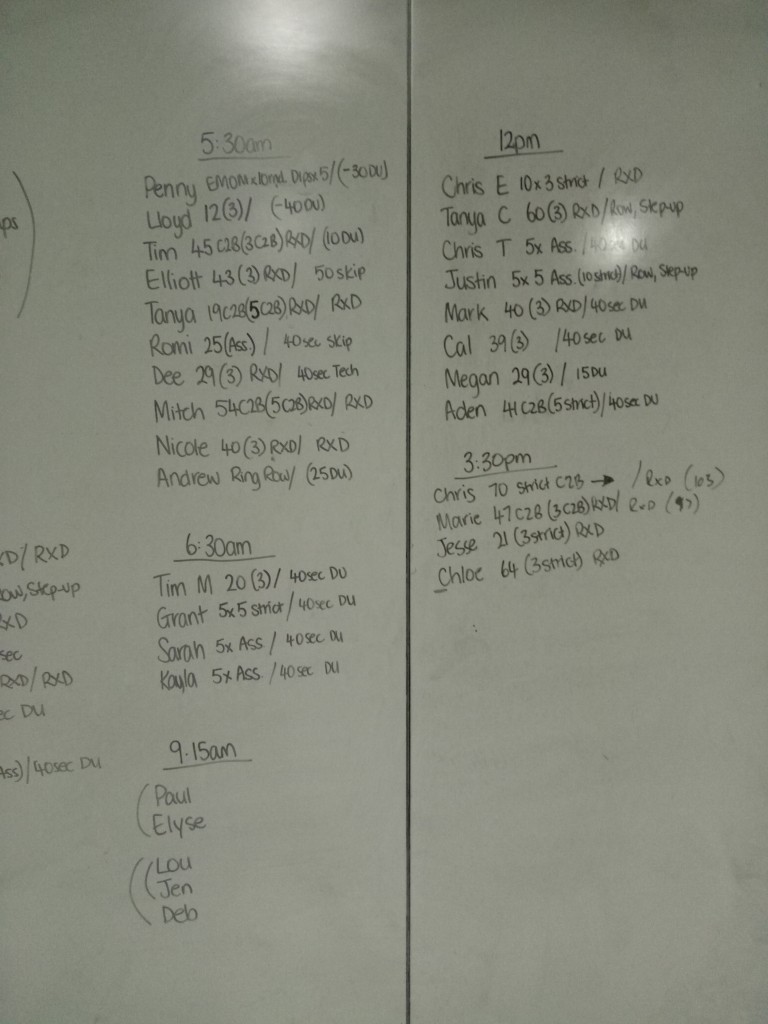 ps
D/ RXD
ow, Step-up
XD
sec
RXD/ RXD
ec DU
Ass)/40sec DU
5:30am
Penny EMOM x 10md Dips x 5/(-30DU)
Lloyd 12(3)/ (-40DU)
Tim 45 C2B(3C2B)RXD/ (10DU)
Elliott 43(3)RXD/ 50 skip
Tanya 19C2B(5C2B)RXD/ RXD
Romi 25(Ass.) / 40sec Skip
Dee 29(3) RXD/ 40sec Tech
Mitch 54C2B(5C2B)RXD/ RXD
Nicole 40(3)RXD/ RXD
Andrew Ring Row/ (25DU)
6:30am
Tim M 20(3)/ 40sec DU
Grant 5x5 strict/40sec DU
Sarah 5x Ass / 40sec DU
Kayla 5x Ass. /40sec DU
9.15am
Paul
Elyse
Lou
Jen
Deb
12pm
Chris E 10x3 strict / RXD
Tanya C 60(3) RXD/Row, Step-up
Chris T 5x Ass. /40sec DU
Justin 5x5 Ass.(10strict)/Row, Step-up
Mark 40(3) RXD/40sec DU
Cal 39(3) /40sec DU
Megan 29(3) / 15DU
Aden 41C2B(5strict)/40sec DU
3:30pm
Chris 70 strict C2B → / RXD (103)
Marie 47C2B(3C2B)RXD/ RXD
Jesse 21(3strict) RXD
Chloe 64 (3strict) RXD